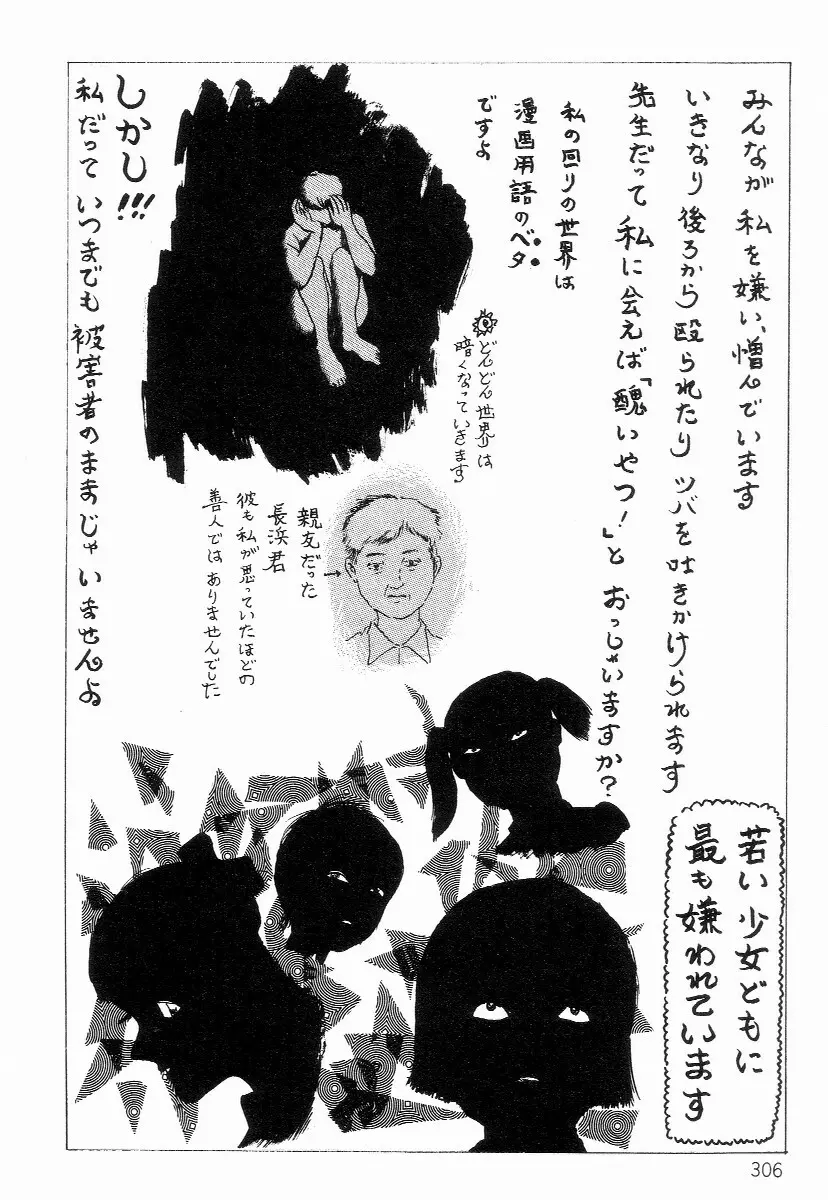 みんなが私を嫌い、憎んでいます
いきなり後ろから殴られたりツバを吐きかけられます
先生だって私に会えば「醜いやつ！」とおっしゃいますか？
私の回りの世界は
漫画用語のベタ
ですよ
どんどん世界は
暗くなっていきます
しかし!!!
私だっていつまでも被害者のままじゃいませんよ
親友だった
長浜君
彼も私が思っていたほどの
善人ではありませんでした
若い少女どもに
最も嫌われています
306